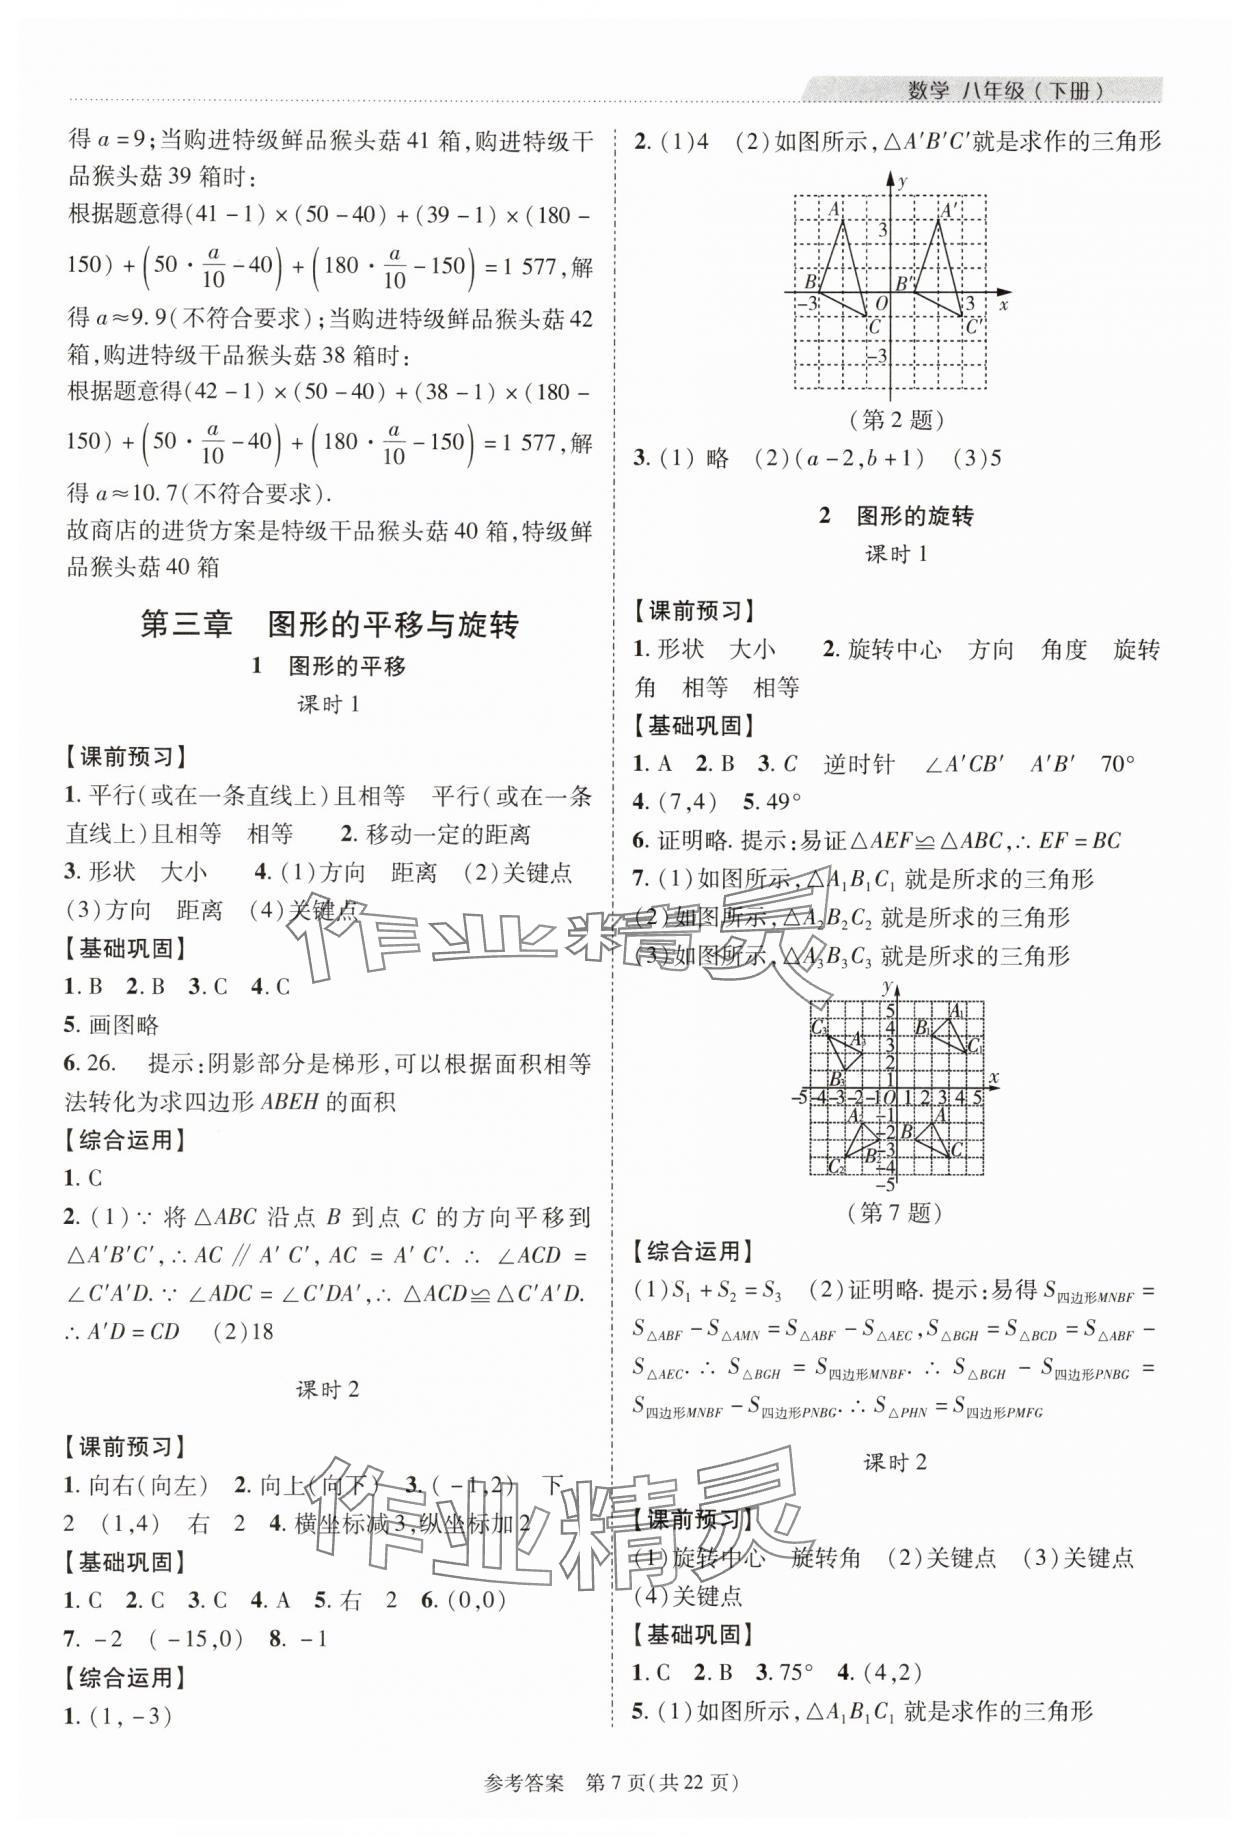 数学 八年级(下册)
得 a=9;当购进特级鲜品猴头菇 41 箱,购进特级干
品猴头菇 39 箱时:
根据题意得(41-1)×(50-40)+(39-1)×(180-
150)+(50·a/10-40)+(180·a/10-150)=1 577,解
得 a≈9.9(不符合要求);当购进特级鲜品猴头菇 42
箱,购进特级干品猴头菇 38 箱时:
根据题意得(42-1)×(50-40)+(38-1)×(180-
150)+(50·a/10-40)+(180·a/10-150)=1 577,解
得 a≈10.7(不符合要求).
故商店的进货方案是特级干品猴头菇 40 箱,特级鲜
品猴头菇 40 箱
第三章 图形的平移与旋转
1 图形的平移
课时 1
【课前预习】
1. 平行(或在一条直线上)且相等 平行(或在一条
直线上)且相等 相等 2. 移动一定的距离
3. 形状 大小 4. (1)方向 距离 (2)关键点
(3)方向 距离 (4)关键点
【基础巩固】
1. B 2. B 3. C 4. C
5. 画图略
6. 26. 提示:阴影部分是梯形,可以根据面积相等
法转化为求四边形 ABEH 的面积
【综合运用】
1. C
2. (1)∵ 将 △ABC 沿点 B 到点 C 的方向平移到
△A′B′C′,∴ AC ∥ A′C′, AC = A′C′. ∴ ∠ACD =
∠C′A′D. ∵ ∠ADC = ∠C′DA′,∴ △ACD≌△C′A′D.
∴ A′D = CD (2)18
课时 2
【课前预习】
1. 向右(向左) 2. 向上(向下) 3. (-1,2) 下
2 (1,4) 右 2 4. 横坐标减 3,纵坐标加 2
【基础巩固】
1. C 2. C 3. C 4. A 5. 右 2 6. (0,0)
7. -2 (-15,0) 8. -1
【综合运用】
1. (1,-3)
2. (1)4 (2)如图所示,△A′B′C′就是求作的三角形
y
A A′
3
B B′
-3 O 3 x
C C′
-3
(第 2 题)
3. (1) 略 (2)(a-2,b+1) (3)5
2 图形的旋转
课时 1
【课前预习】
1. 形状 大小 2. 旋转中心 方向 角度 旋转
角 相等 相等
【基础巩固】
1. A 2. B 3. C 逆时针 ∠A′CB′ A′B′ 70°
4. (7,4) 5. 49°
6. 证明略. 提示:易证△AEF≌△ABC,∴ EF=BC
7. (1)如图所示,△A₁B₁C₁ 就是所求的三角形
(2)如图所示,△A₂B₂C₂ 就是所求的三角形
(3)如图所示,△A₃B₃C₃ 就是所求的三角形
y
5
C₃ 4 B₁ A₁
A₃ 3 C₁
2
B₃ 1 x
-5-4-3-2-1O 1 2 3 4 5
A₂ -1 A
-2 B
B₂ -3 C
C₂ -4
-5
(第 7 题)
【综合运用】
(1)S₁+S₂=S₃ (2)证明略. 提示:易得 S四边形MNBF =
S△ABF - S△AMN = S△ABF - S△AEC, S△BGH = S△BCD = S△ABF -
S△AEC. ∴ S△BGH = S四边形MNBF. ∴ S△BGH - S四边形PNBG =
S四边形MNBF - S四边形PNBG. ∴ S△PHN = S四边形PMFG
课时 2
【课前预习】
(1)旋转中心 旋转角 (2)关键点 (3)关键点
(4)关键点
【基础巩固】
1. C 2. B 3. 75° 4. (4,2)
5. (1)如图所示,△A₁B₁C₁ 就是求作的三角形
作业精灵
作业精灵
参考答案 第 7 页(共 22 页)